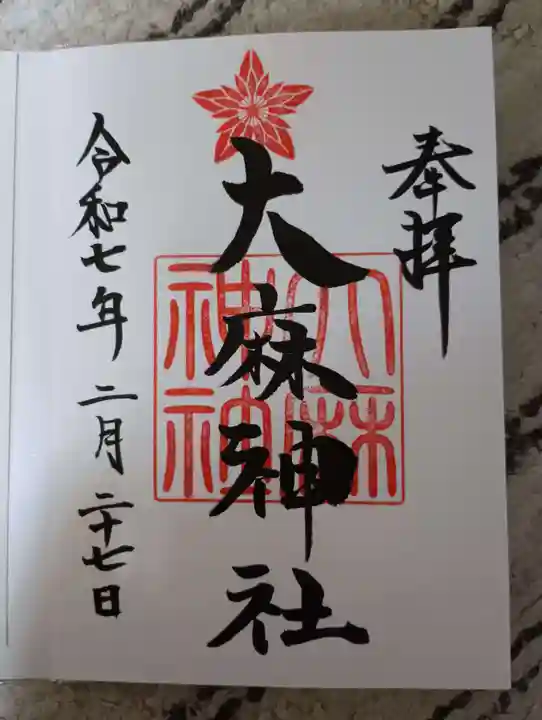 奉拝
大麻神社
令和七年二月二十七日